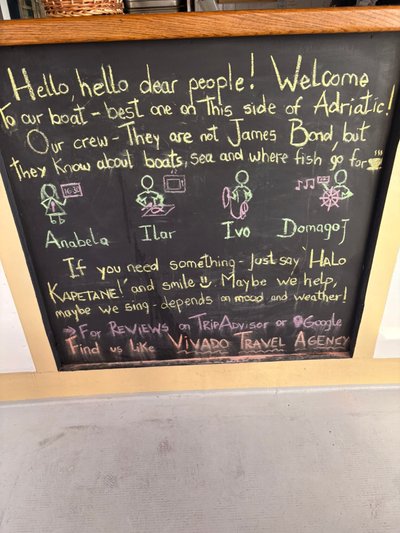 Hello, hello dear people! Welcome
to our boat - best one on this side of Adriatic!
Our crew - They are not James Bond, but
they know about boats, sea and where fish go for
Anabela Ilar Ivo Domagoj
If you need something - just say 'Halo
Kapetane!' and smile Maybe we help,
maybe we sing - depends on mood and weather!
→ For Reviews on TripAdvisor or Google
Find us like Vivado Travel Agency